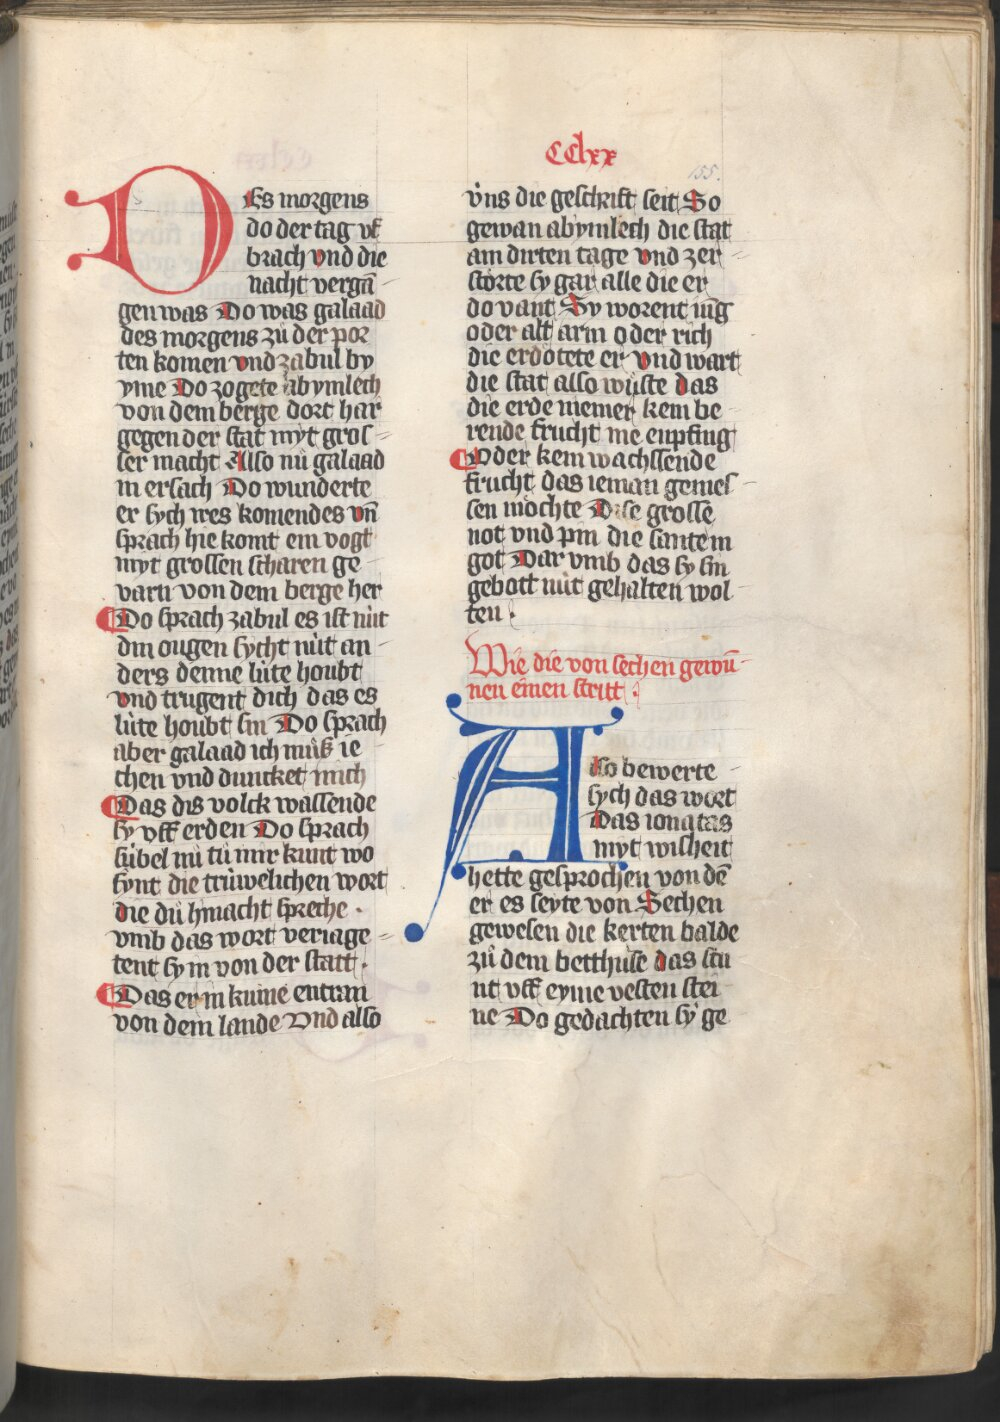 CClxx
155.
DEs morgens
do der tag vf
brach vnd die
nacht vergā
gen was Do was galaad
des morgens zů der por
ten komen vnd zabul by
yme Do zogete abymlech
von dem berge dort har
gegen der stat myt gros-
ser macht Also nů galaad
in ersach Do wunderte
er sych wes komendes vn̄
sprach hie komt ein vogt
myt grossen scharen ge
varn von dem berge her
Do sprach zabul es ist nüt
din ougen sycht nüt an-
ders denne lüte houbt
vnd trugent dich das es
lüte houbt sin Do sprach
aber galaad ich můß ie-
chen vnd duncket mich
Das dis volck wassende
sy vff erden Do sprach
sübel nü tů mir kunt wo
synt die trüwelichen wort
die dů hmacht spreche.
vmb das wort veriage=
tent sy in von der statt.
Das er in kume entran
von dem lande Vnd also
v̈ns die geschrift seit So
gewan abymlech die stat
am dirten tage vnd zer-
storte sy gar alle die er
do vant Sy worent iūg
oder alt arm oder rich
die erdötete er vnd wart
die stat also wüste das
die erde niemer kein be-
rende frucht me enpfing
Oder kein wachssende
frucht das ieman genies-
sen möchte Dise grosse
not vnd pin die sante in
got Dar vmb das sy sin
gebott nüt gehalten wol
ten.
Wie die von sechen gewū-
nen einen stritt
ALso bewerte-
sych das wort
Das ionatas
myt wisheit
hette gesprochen von dē
er es seyte von Sechen
gewesen die kerten balde
zů dem betthuse das stu
nt vff eyme vesten stei-
ne Do gedachten sy ge